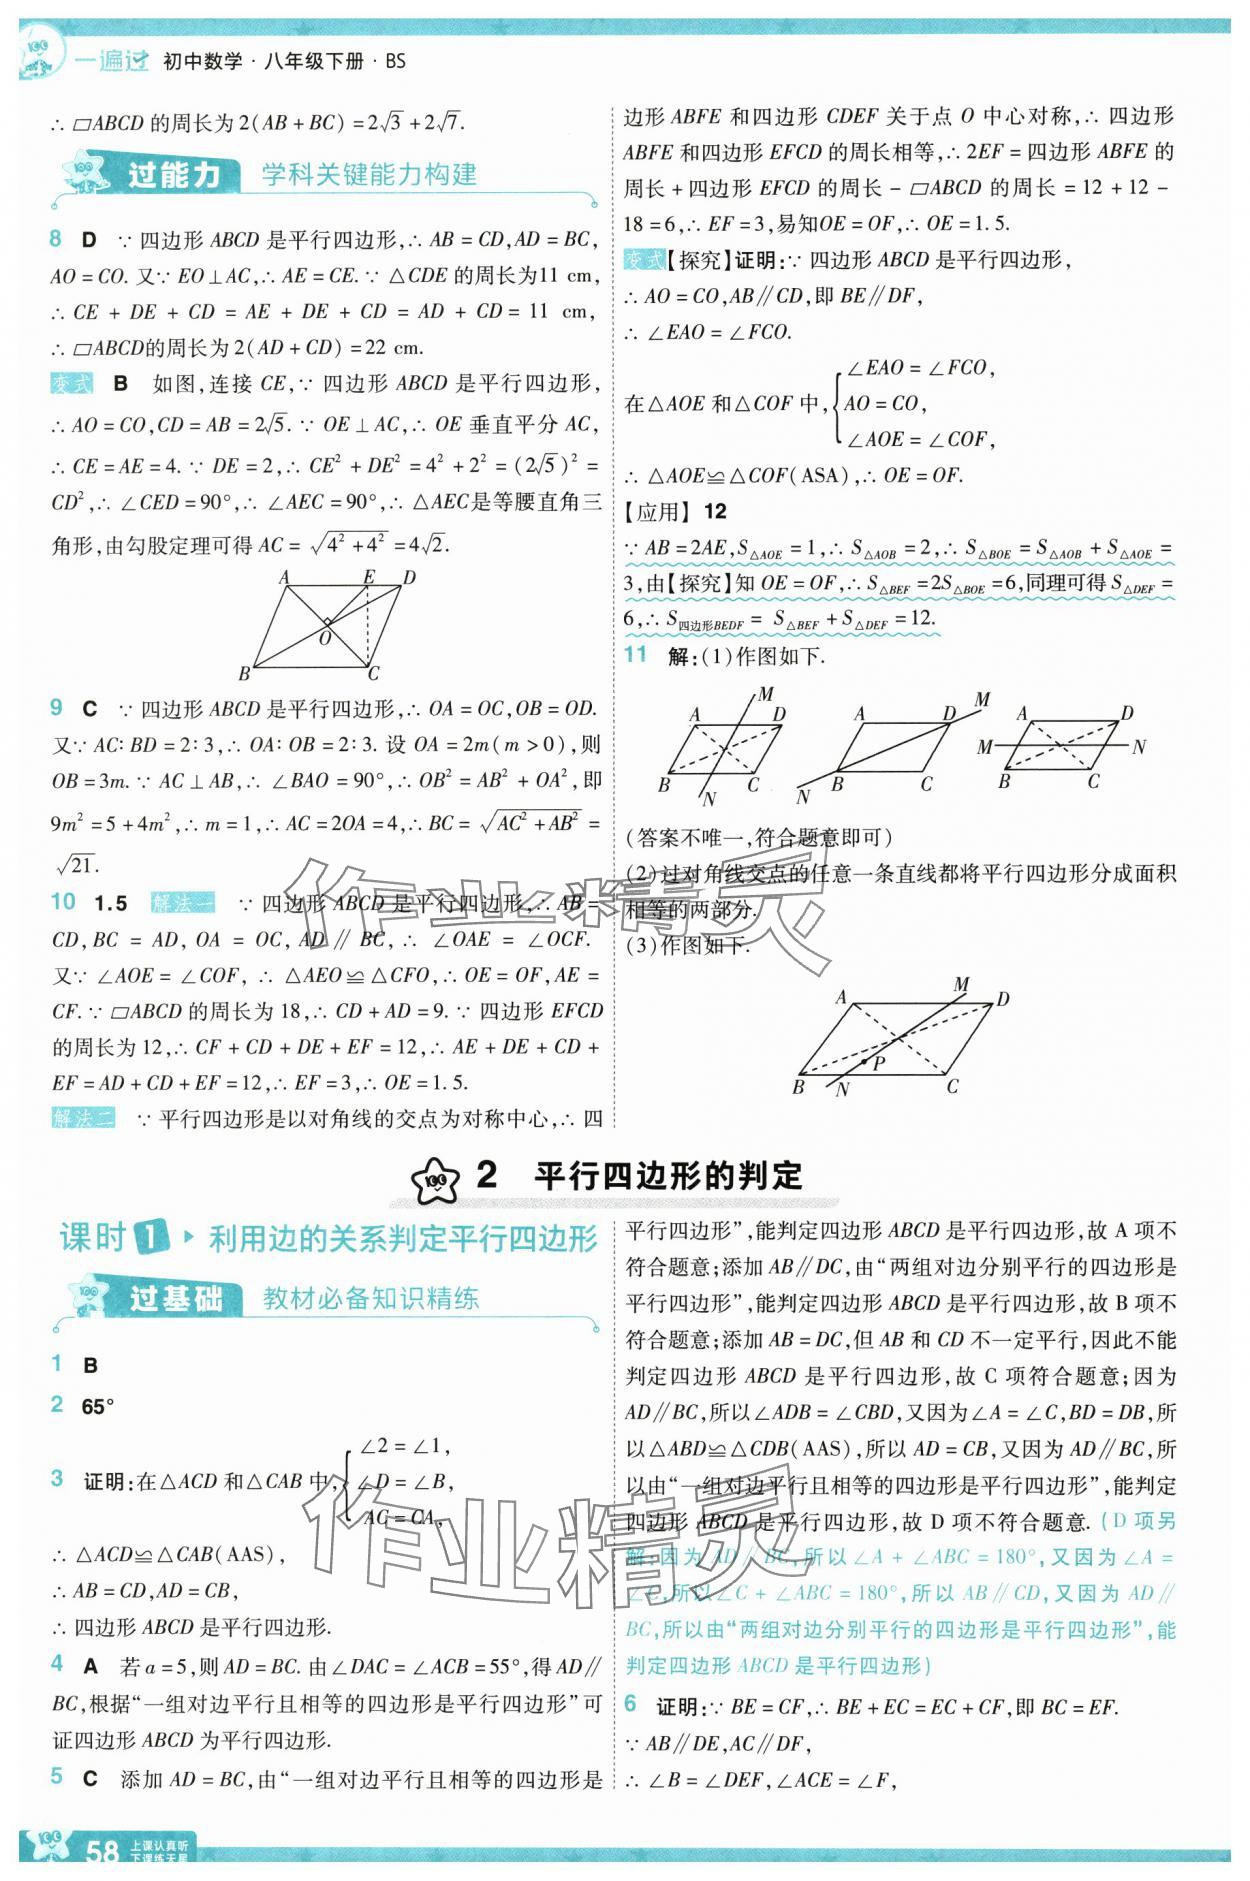 一遍过 初中数学·八年级下册·BS
∴ ▱ABCD 的周长为 2(AB+BC)=2√3+2√7.
过能力 学科关键能力构建
8 D ∵ 四边形 ABCD 是平行四边形,∴ AB=CD,AD=BC,
AO=CO. 又∵ EO⊥AC,∴ AE=CE. ∵ △CDE 的周长为11 cm,
∴ CE + DE + CD = AE + DE + CD = AD + CD = 11 cm,
∴ ▱ABCD的周长为 2(AD+CD)=22 cm.
变式 B 如图,连接 CE,∵ 四边形 ABCD 是平行四边形,
∴ AO=CO,CD=AB=2√5. ∵ OE⊥AC,∴ OE 垂直平分 AC,
∴ CE=AE=4. ∵ DE=2,∴ CE²+DE²=4²+2²=(2√5)²=
CD²,∴ ∠CED=90°,∴ ∠AEC=90°,∴ △AEC是等腰直角三
角形,由勾股定理可得 AC=√(4²+4²)=4√2.
A E D
O
B C
9 C ∵ 四边形 ABCD 是平行四边形,∴ OA=OC,OB=OD.
又∵ AC∶BD=2∶3,∴ OA∶OB=2∶3. 设 OA=2m(m>0),则
OB=3m. ∵ AC⊥AB,∴ ∠BAO=90°,∴ OB²=AB²+OA²,即
9m²=5+4m²,∴ m=1,∴ AC=2OA=4,∴ BC=√(AC²+AB²)=
√21.
10 1.5 解法一 ∵ 四边形 ABCD 是平行四边形,∴ AB=
CD,BC = AD, OA = OC, AD∥BC,∴ ∠OAE = ∠OCF.
又∵ ∠AOE=∠COF,∴ △AEO≌△CFO,∴ OE=OF,AE=
CF. ∵ ▱ABCD 的周长为 18,∴ CD+AD=9. ∵ 四边形 EFCD
的周长为 12,∴ CF+CD+DE+EF=12,∴ AE+DE+CD+
EF=AD+CD+EF=12,∴ EF=3,∴ OE=1.5.
解法二 ∵ 平行四边形是以对角线的交点为对称中心,∴ 四
边形 ABFE 和四边形 CDEF 关于点 O 中心对称,∴ 四边形
ABFE 和四边形 EFCD 的周长相等,∴ 2EF=四边形 ABFE 的
周长+四边形 EFCD 的周长-▱ABCD 的周长=12+12-
18=6,∴ EF=3,易知OE=OF,∴ OE=1.5.
变式【探究】证明:∵ 四边形 ABCD 是平行四边形,
∴ AO=CO,AB∥CD,即 BE∥DF,
∴ ∠EAO=∠FCO.
∠EAO=∠FCO,
在△AOE 和△COF 中, AO=CO,
∠AOE=∠COF,
∴ △AOE≌△COF(ASA),∴ OE=OF.
【应用】 12
∵ AB=2AE,S△AOE=1,∴ S△AOB=2,∴ S△BOE=S△AOB+S△AOE=
3,由【探究】知 OE=OF,∴ S△BEF=2S△BOE=6,同理可得 S△DEF=
6,∴ S四边形BEDF= S△BEF+S△DEF=12.
11 解:(1)作图如下.
A M D B N C
A D M N B C
A D M N B C
(答案不唯一,符合题意即可)
(2)过对角线交点的任意一条直线都将平行四边形分成面积
相等的两部分.
(3)作图如下.
A M D
P
B N C
2 平行四边形的判定
课时1 利用边的关系判定平行四边形
过基础 教材必备知识精练
1 B
2 65°
∠2=∠1,
3 证明:在△ACD 和△CAB 中, ∠D=∠B,
AC=CA,
∴ △ACD≌△CAB(AAS),
∴ AB=CD,AD=CB,
∴ 四边形 ABCD 是平行四边形.
4 A 若 a=5,则 AD=BC. 由∠DAC=∠ACB=55°,得 AD∥
BC,根据“一组对边平行且相等的四边形是平行四边形”可
证四边形 ABCD 为平行四边形.
5 C 添加 AD=BC,由“一组对边平行且相等的四边形是
平行四边形”,能判定四边形 ABCD 是平行四边形,故 A 项不
符合题意;添加 AB∥DC,由“两组对边分别平行的四边形是
平行四边形”,能判定四边形 ABCD 是平行四边形,故 B 项不
符合题意;添加 AB=DC,但 AB 和 CD 不一定平行,因此不能
判定四边形 ABCD 是平行四边形,故 C 项符合题意;因为
AD∥BC,所以∠ADB=∠CBD,又因为∠A=∠C,BD=DB,所
以△ABD≌△CDB(AAS),所以 AD=CB,又因为AD∥BC,所
以由“一组对边平行且相等的四边形是平行四边形”,能判定
四边形 ABCD 是平行四边形,故 D 项不符合题意.(D 项另
解:因为 AD∥BC,所以∠A+∠ABC=180°,又因为∠A=
∠C,所以∠C+∠ABC=180°,所以 AB∥CD,又因为 AD∥
BC,所以由“两组对边分别平行的四边形是平行四边形”,能
判定四边形 ABCD 是平行四边形)
6 证明:∵ BE=CF,∴ BE+EC=EC+CF,即 BC=EF.
∵ AB∥DE,AC∥DF,
∴ ∠B=∠DEF,∠ACE=∠F,
作业精灵
作业精灵
58 上课认真听
下课练天星